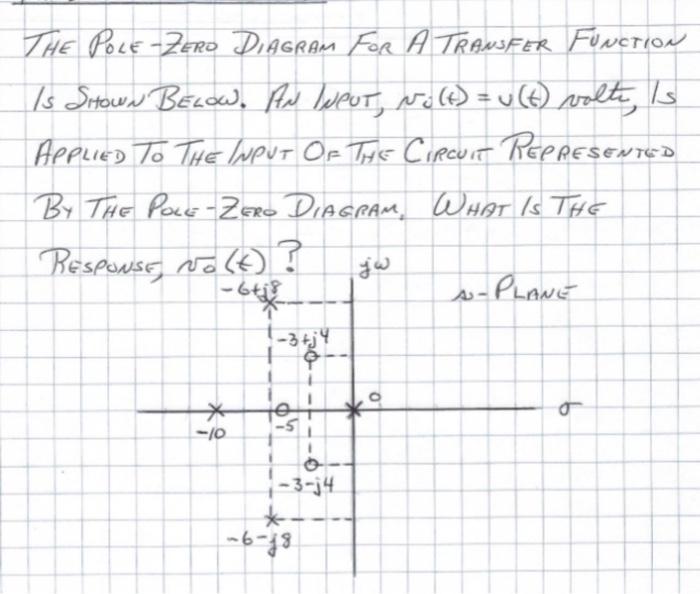 THE POLE-ZERO DIAGRAM FOR A TRANSFER FUNCTION
IS SHOWN BELOW. AN INPUT, vi(t) = u(t) volts, IS
APPLIED TO THE INPUT OF THE CIRCUIT REPRESENTED
BY THE POLE-ZERO DIAGRAM. WHAT IS THE
RESPONSE, vo(t)?
jω
-6+j8
s-PLANE
-3+j4
0
σ
-10
-5
-3-j4
-6-j8